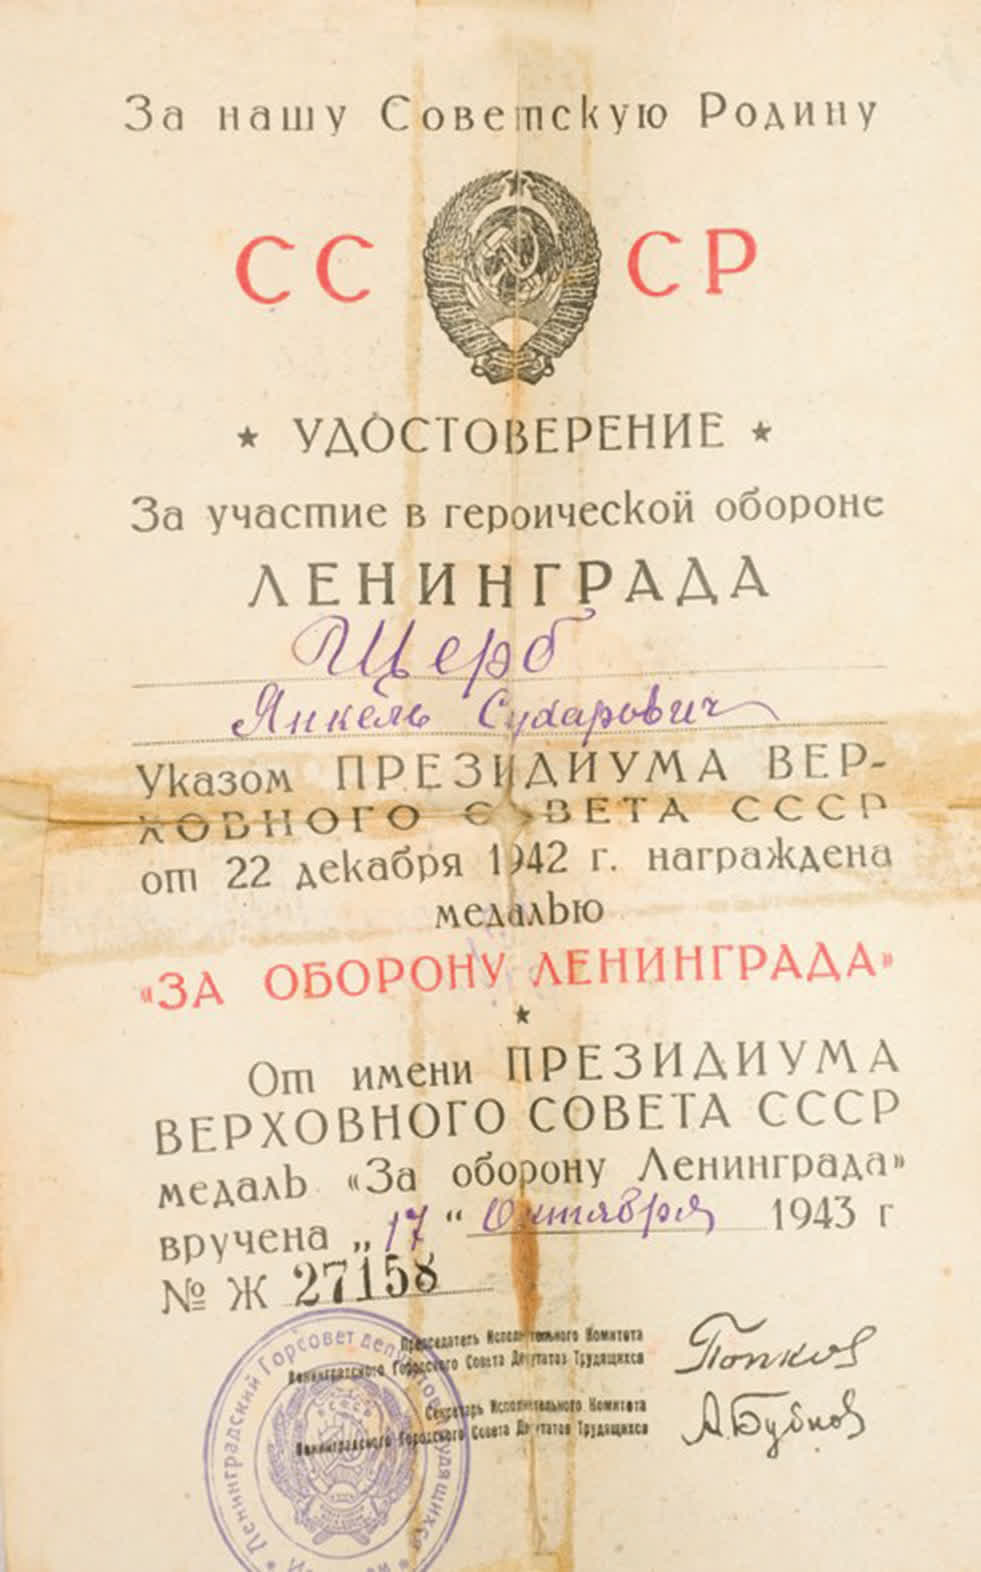 За нашу Советскую Родину
СС СР
★ УДОСТОВЕРЕНИЕ ★
За участие в героической обороне
ЛЕНИНГРАДА
Щерб
Янкель Сухарович
Указом ПРЕЗИДИУМА ВЕР-
ХОВНОГО СОВЕТА СССР
от 22 декабря 1942 г. награждена
медалью
«ЗА ОБОРОНУ ЛЕНИНГРАДА»
★
От имени ПРЕЗИДИУМА
ВЕРХОВНОГО СОВЕТА СССР
медаль «За оборону Ленинграда»
вручена „17“ Октября 1943 г
№ Ж 27158
Председатель Исполнительного Комитета
Ленинградского Городского Совета Депутатов Трудящихся
Попков
Секретарь Исполнительного Комитета
Ленинградского Городского Совета Депутатов Трудящихся
А Бубнов
Ленинградский Горсовет депутатов трудящихся